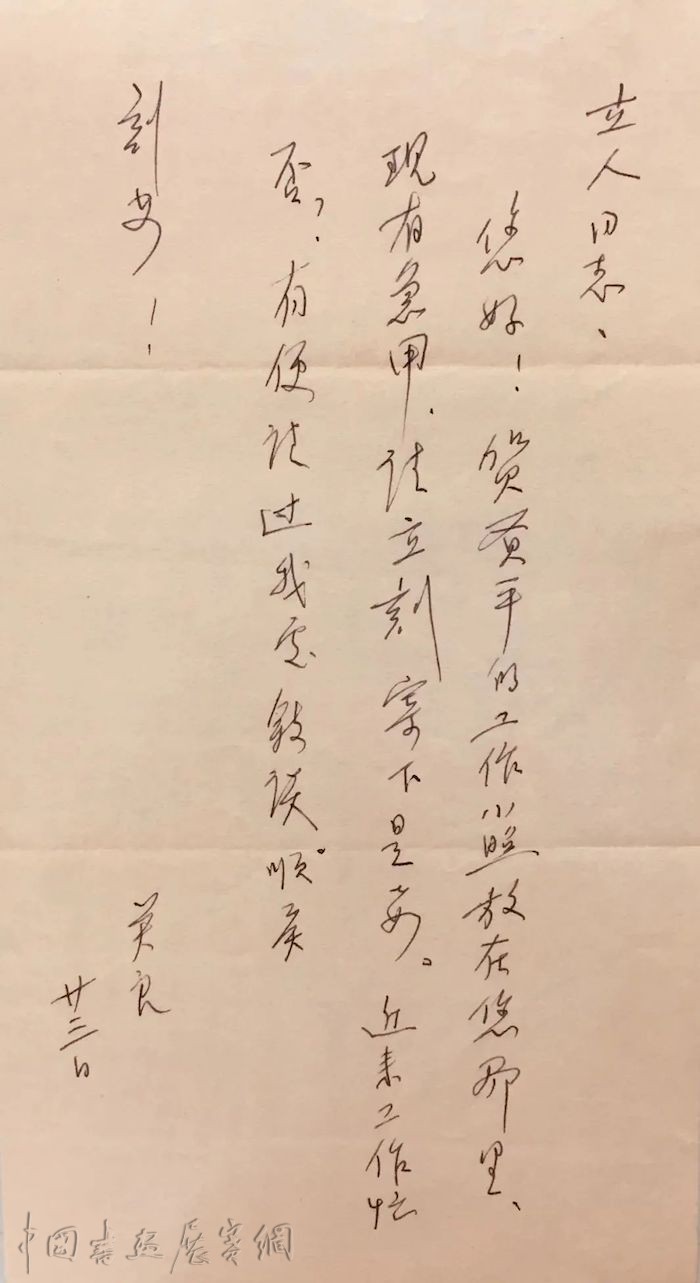 立人同志、
您好！贺平的工作小照放在您那里、
现有急用、请立刻寄下是。近来工作忙
否？有便请过我处叙谈。顺矦
刻安！
英良
廿三日
中国書画展賽網